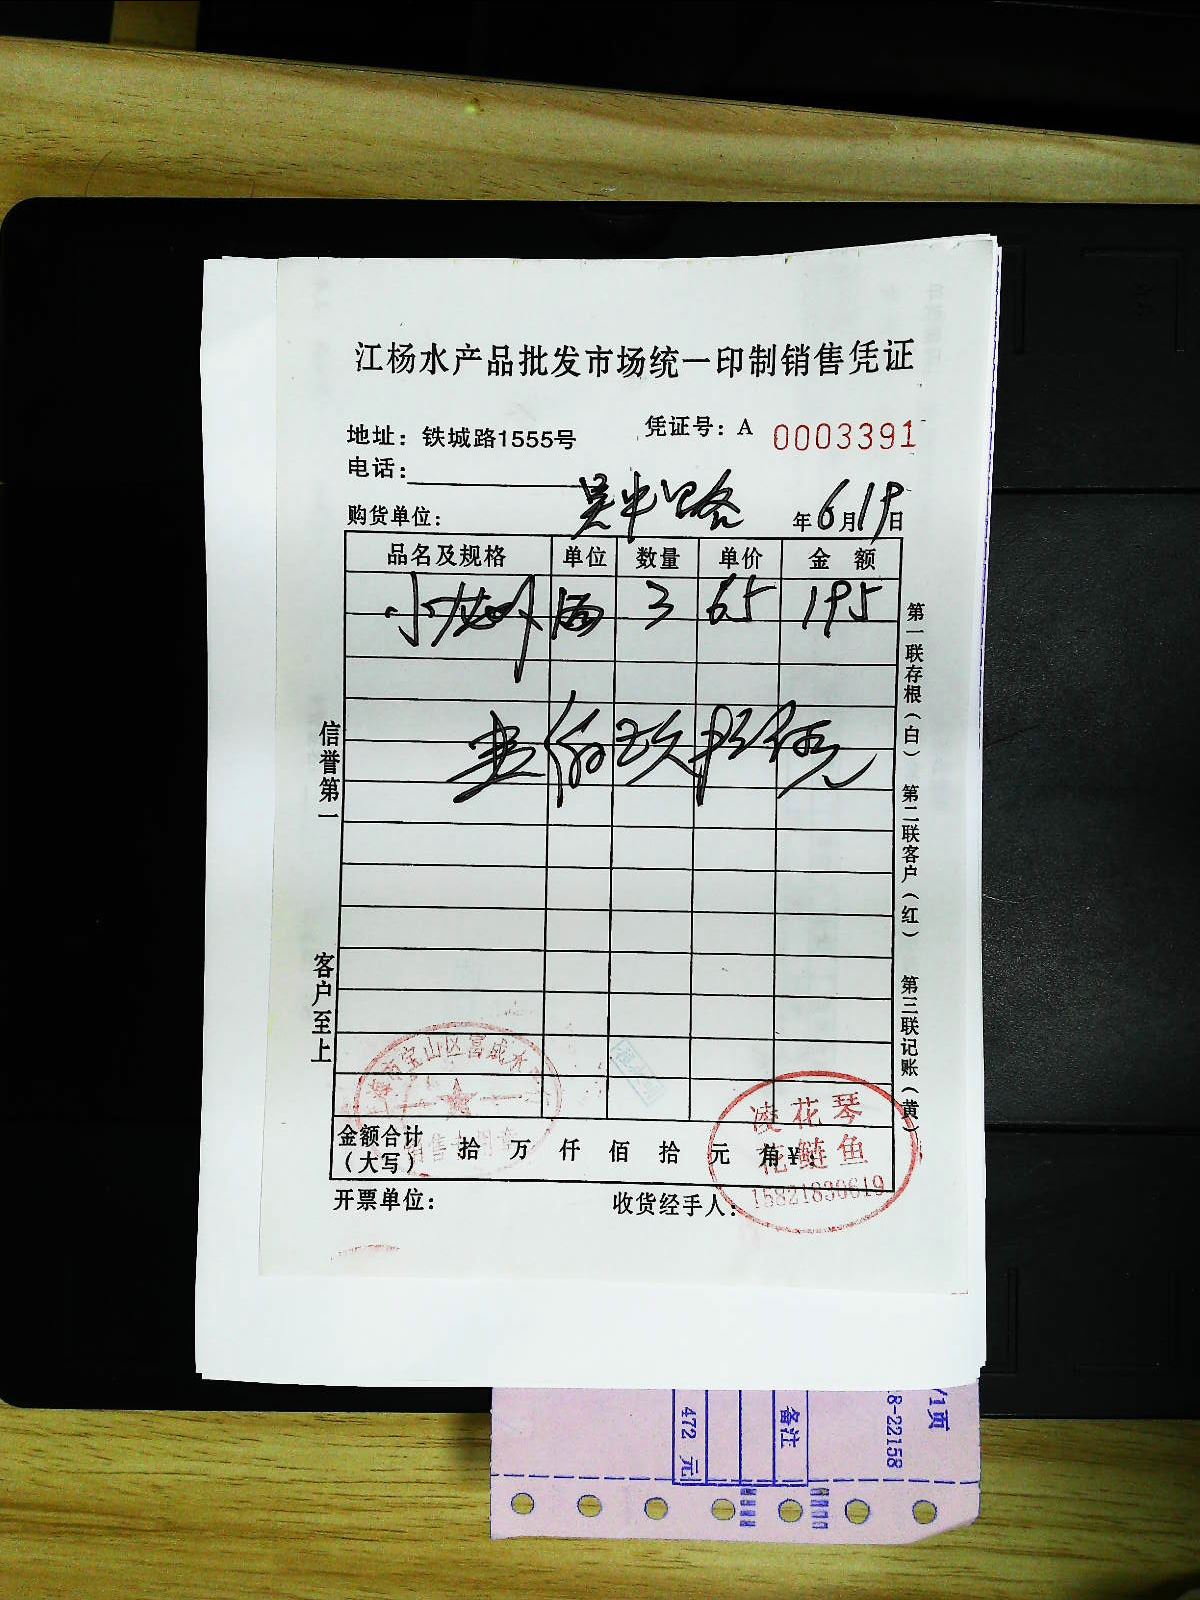 江杨水产品批发市场统一印制销售凭证
地址：铁城路1555号 凭证号：A 0003391
电话：
购货单位： 吴中路 年6月19日
品名及规格 单位 数量 单价 金 额
小龙虾 3 65 195
壹佰玖拾伍元
信誉第一
客户至上
第一联存根（白） 第二联客户（红） 第三联记账（黄）
金额合计（大写） 拾 万 仟 佰 拾 元 角 ¥：
开票单位： 收货经手人：
宝山区富成水
销售专用章
凌花琴
花鲢鱼
15821830619
/1页
8-22158
备注
472 元